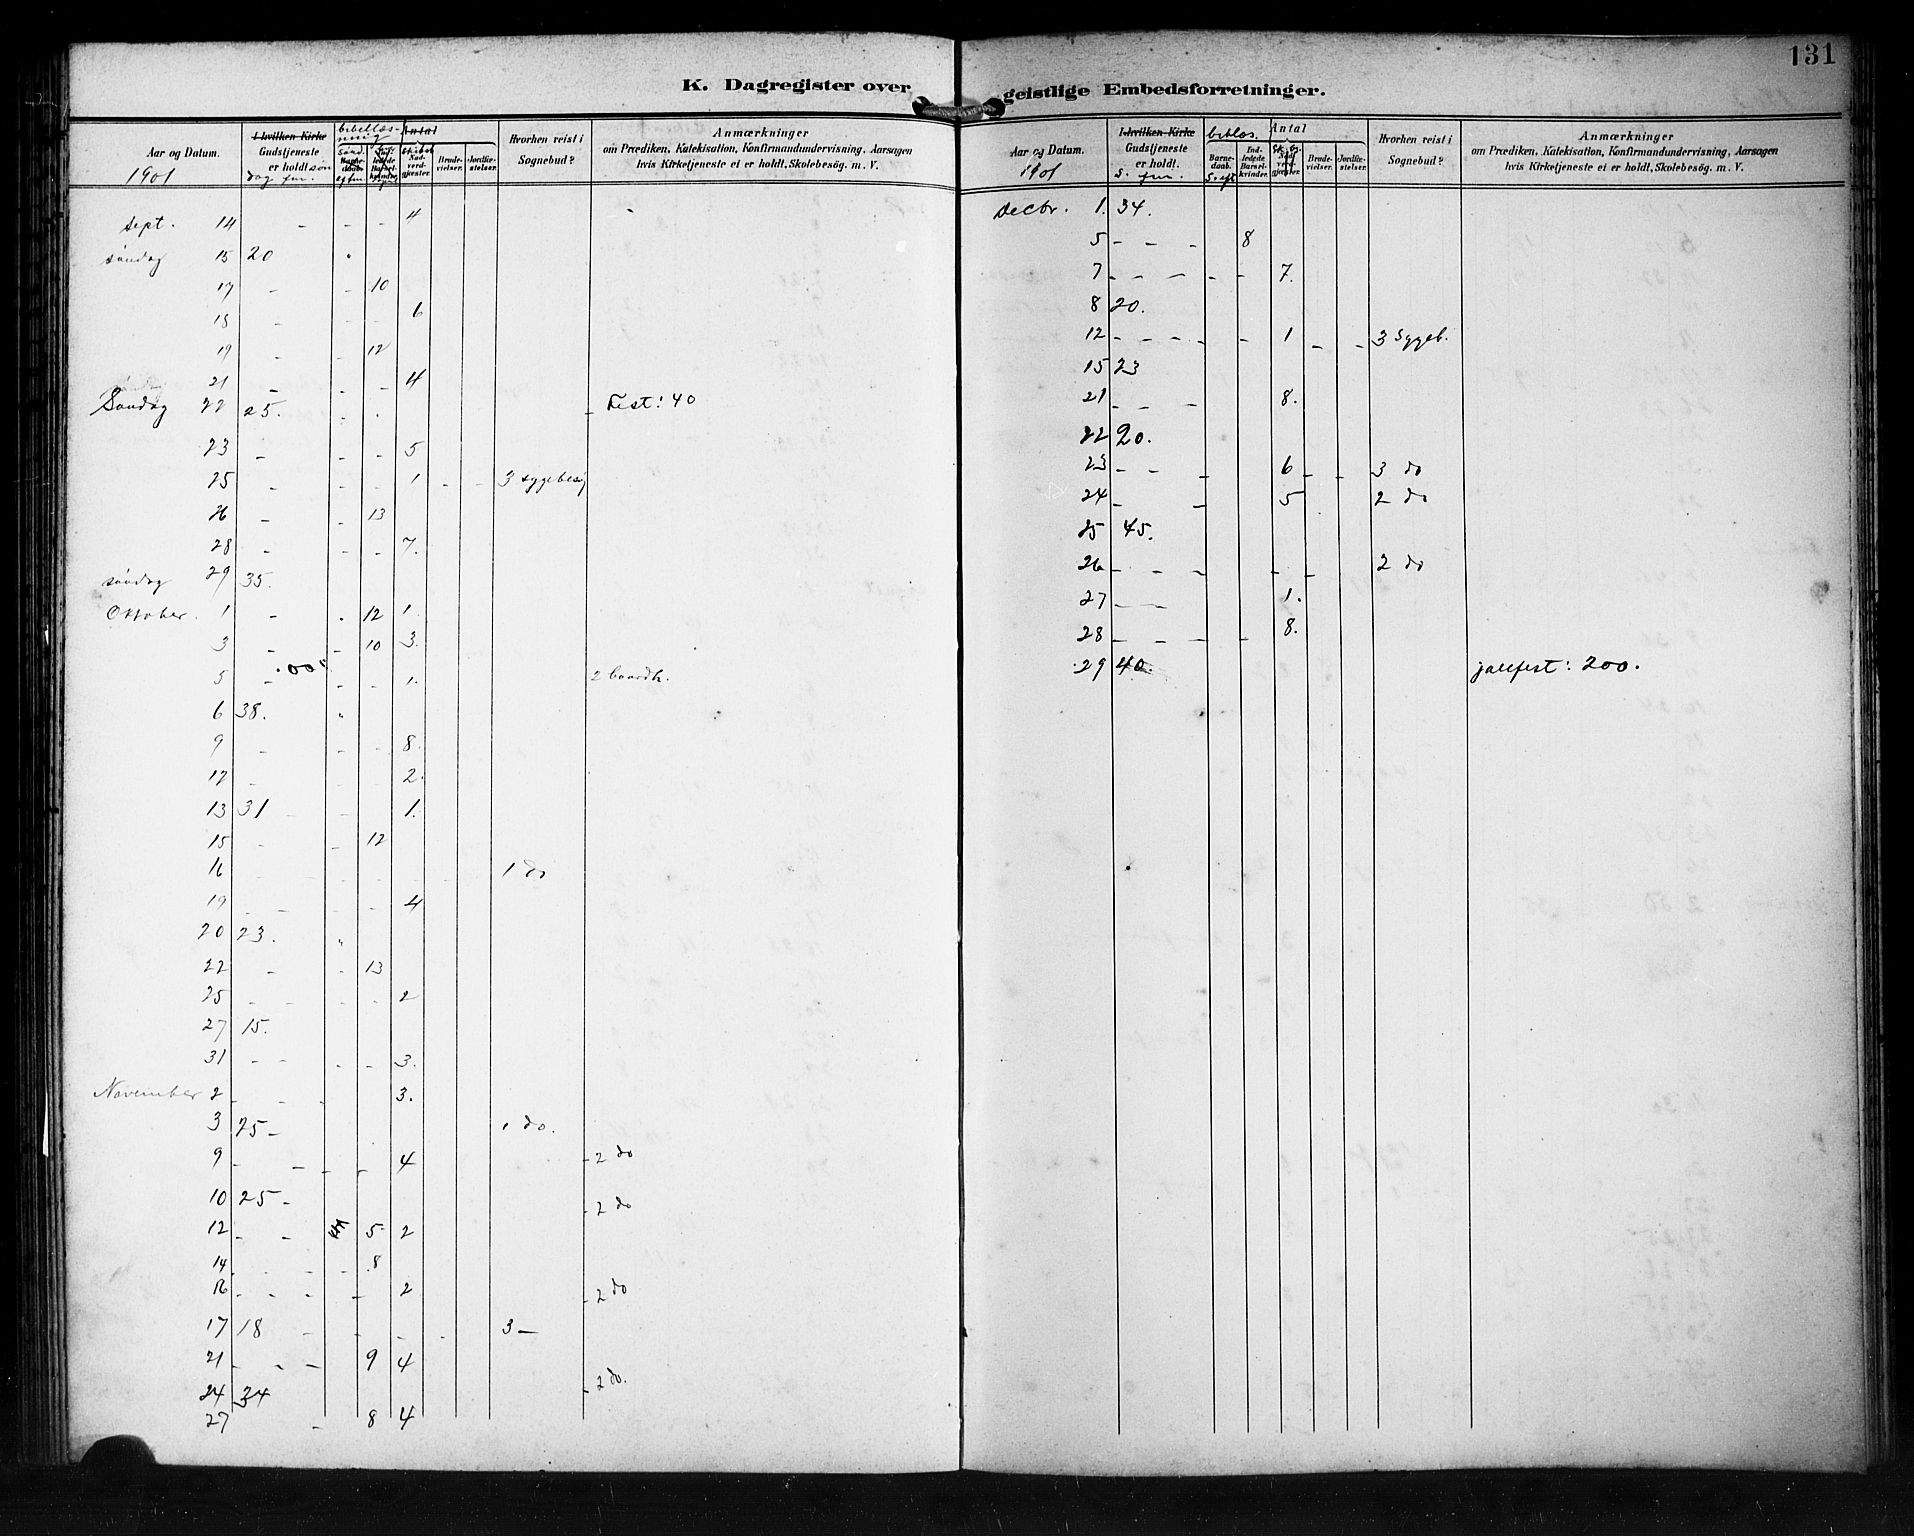 131
K. Dagregister over geistlige Embedsforretninger.
Aar og Datum. 1901
I hvilken Kirke Gudstjeneste er holdt søndag fm.
bibellæsning
Antal
Hvorhen reist i Sognebud?
Anmærkninger om Prædiken, Katekisation, Konfirmandundervisning, Aarsagen hvis Kirketjeneste ei er holdt, Skolebesøg. m. V.
Sept. 14 - - - 4
søndag 15 20 "
17 - - 10
18 - - - 6
19 - - 12
21 - - - 4
Søndag 22 25. - - - Fest: 40
23 - - - 5
25 - - - 1 - - 3 sygebesøg
26 - - 13
28 - - - 7.
søndag 29 35.
Oktober. 1 - - 12 1.
3 - - 10 3.
5 - - - 1. 2 baardh.
6 38. "
9 - - - 8.
12 - - - 2.
13 31 - - 1.
15 - - 12
16 - - - - - 1 do
19 - - - - 4
20 23. "
22 - - 13
25 - - - - 2
27 15.
31 - - - - 3.
November 2 - - - 3.
3 25 - 1 do.
9 - - - - 4 - 2 do
10 25 - - 2 do
12 - - 5 2
14 - - - - 8
16 - - - - - 2 - 2 do
17 18 - - - - - 3 -
21 - - - 9 4
24 34 - 2 do.
27 - 8 4
Aar og Datum. 1901
I hvilken Kirke Gudstjeneste er holdt. s. fm.
biblæs.
S. eft
Barnedaab.
Indledede Barselkvinder.
Antal
Nadverdgjester.
Brudevielser.
Jordfæstelser.
Hvorhen reist i Sognebud?
Anmærkninger om Prædiken, Katekisation, Konfirmandundervisning, Aarsagen hvis Kirketjeneste ei er holdt, Skolebesøg. m. V.
Decbr. 1. 34.
5 - - - 8
7 - - - - - 7.
8 20.
12 - - - - - 1 - - 3 Sygeb.
15 23
21 - - - 8.
22 20.
23 - - - 6 - - 3 do
24 - - 5 2 do
25 45.
26 - - - - - - 2 do
27 - - 1.
28 - - - - 8.
29 40. julefest: 200.